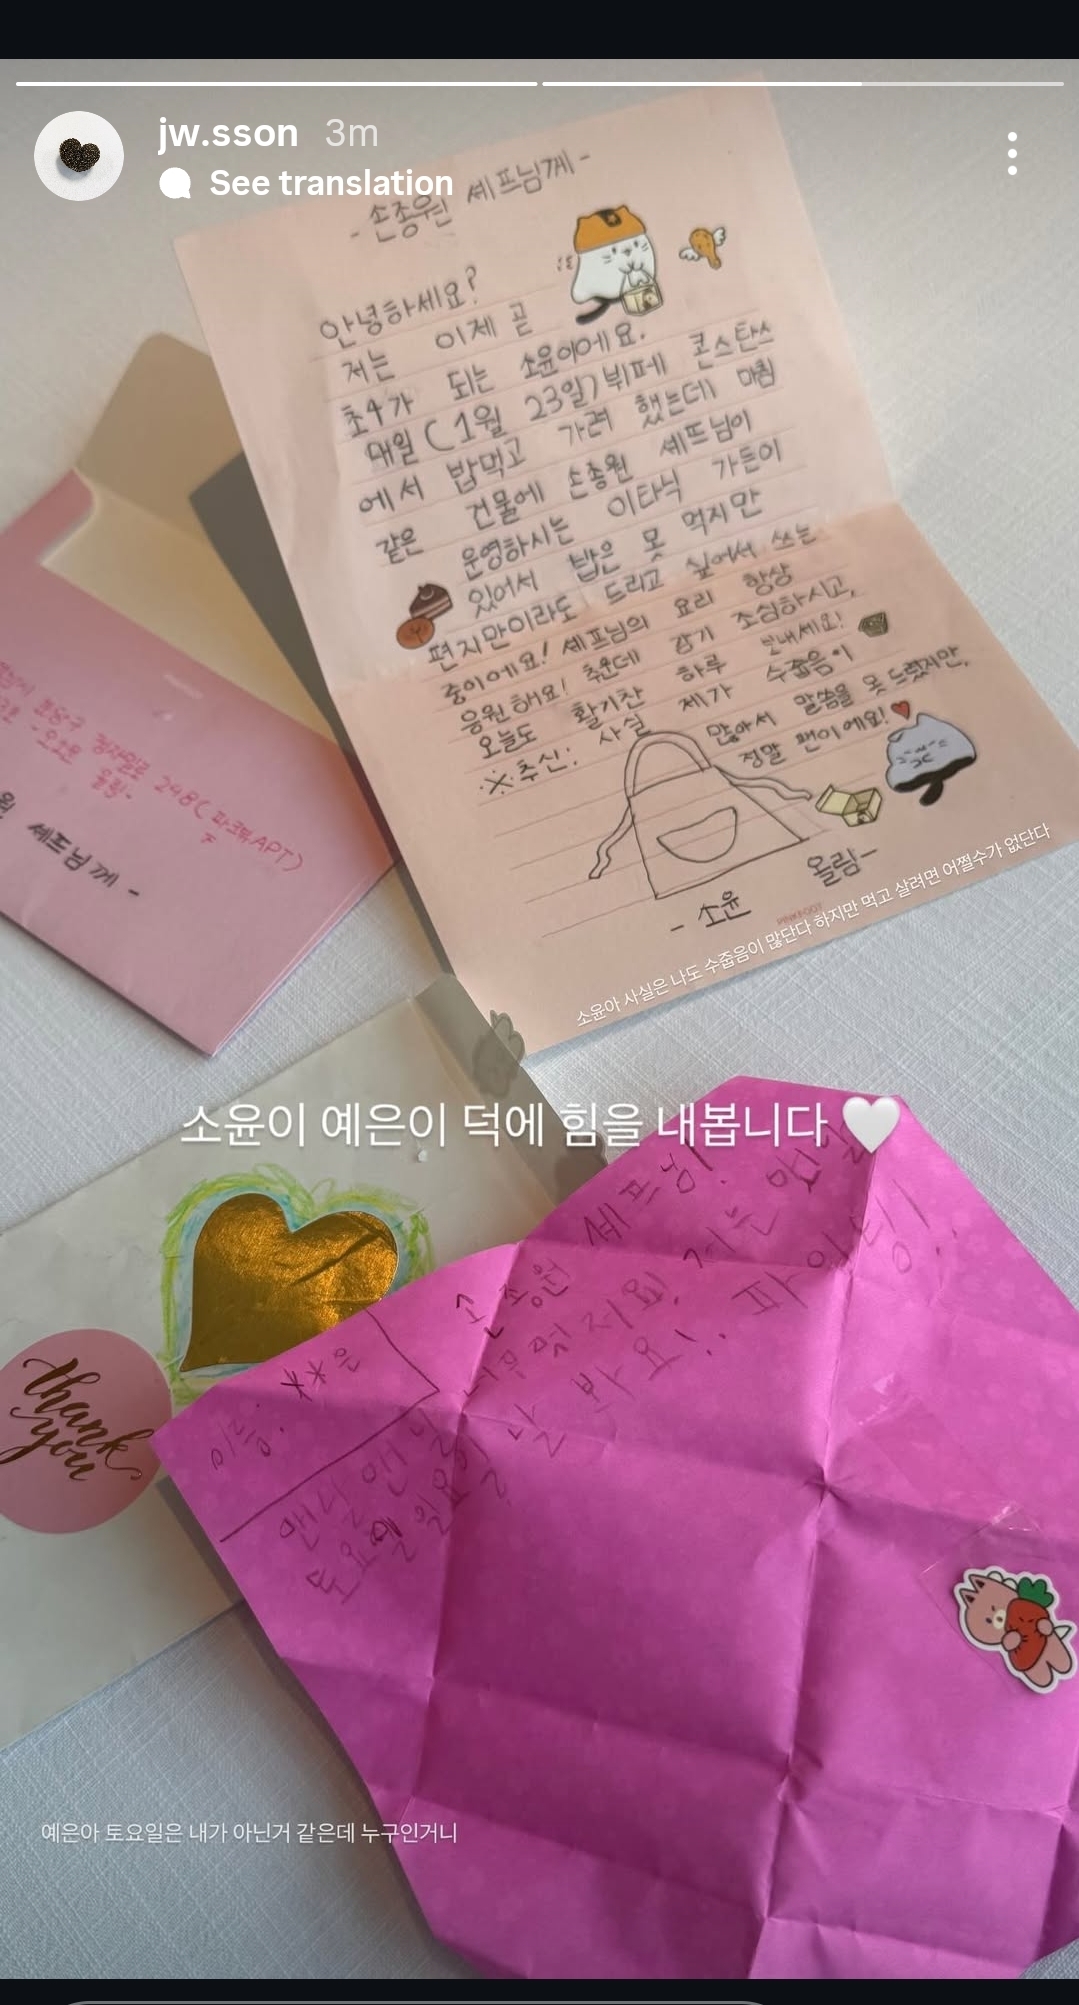 jw.sson 3m
See translation
- 손종원 셰프님께 -
안녕하세요?
저는 이제 곧
초4가 되는 소윤이에요.
내일 (1월 23일) 뷔페 콘스탄스
에서 밥먹고 가려 했는데 마침
같은 건물에 손종원 셰프님이
운영하시는 이타닉 가든이
있어서 밥은 못 먹지만
편지만이라도 드리고 싶어서 쓰는
중이에요! 셰프님의 요리 항상
응원해요! 추운데 감기 조심하시고,
오늘도 활기찬 하루 보내세요!
※추신: 사실 제가 수줍음이
많아서 말씀을 못 드렸지만,
정말 팬이에요!
- 소윤 올림-
소윤아 사실은 나도 수줍음이 많단다 하지만 먹고 살려면 어쩔수가 없단다
248(파크뷰APT)
셰프님께 -
소윤이 예은이 덕에 힘을 내봅니다
thank
you
이름: **은
손종원 셰프님!
너무 멋져요! 저는
맨날맨날
토요일 일요일 날 봐요! 파이팅!
예은아 토요일은 내가 아닌거 같은데 누구인거니